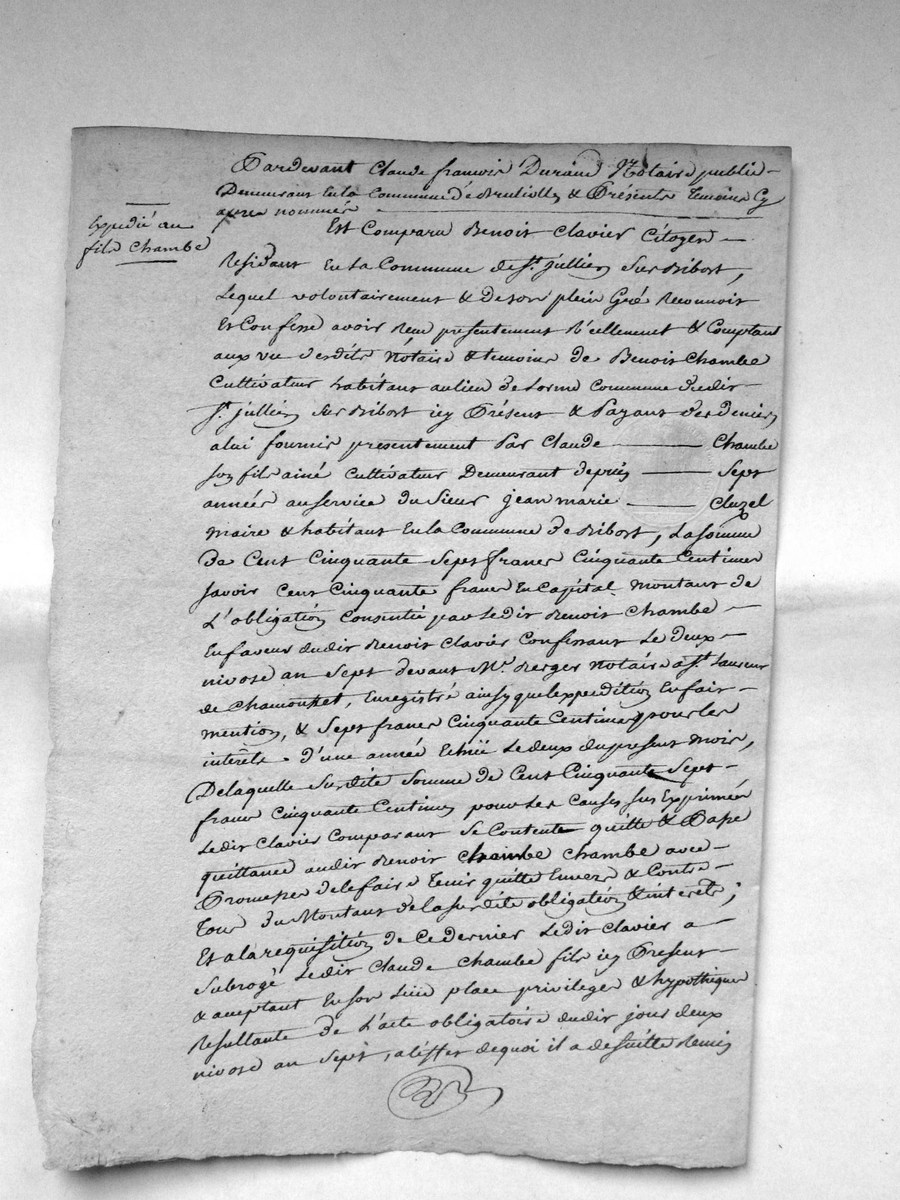 Pardevant Claude francois Durand Notaire public
Demeurant En la Commune de Brulliolles & Présents Temoins Cy
apres nommés
Expedié au
fils Chambe
Est Comparu Benoit Clavier Citoyen
Residant En la Commune de St. jullien Sur Bibost,
Lequel volontairement & de son plein Gré Reconnoit
Et Confesse avoir Reçu presentement Réellement & Comptant
aux vue desdits Notaire & temoins de Benoit Chambe
Cultivateur habitant au lieu de Lorme Commune dudit
St. jullien Sur Bibost icy Présent & Payant des deniers
a lui fournis presentement Par Claude Chambe
son fils ainé Cultivateur Demeurant depuis Sept
années au service du Sieur jean marie Cluzel
maire & habitant En la Commune de Bibost, La somme
De Cent Cinquante Sept francs Cinquante Centimes
savoir Cent Cinquante francs En Capital montant de
L'obligation Consentie par Ledit Benoit Chambe
En faveur dudit Benoit Clavier Confessant Le deux
nivose an Sept devant Me. Berger Notaire a St. Laurent
de Chamousset, Enregistré ainsy que lexpedition En fait
mention, & Sept francs Cinquante Centimes pour les
interets d'une année Echüe Le deux du present mois,
De laquelle Susdite Somme de Cent Cinquante Sept
francs Cinquante Centimes pour Les Causes sus Exprimées
Ledit Clavier Comparant Se Contente quitte & Passe
quittance audit Benoit Chambe Chambe avec
Promesse de le faire Tenir quitte Envers & Contre
Tous du Montant de la Susdite obligation & interets;
Et a la requisition de Ce dernier Ledit Clavier a
Subrogé Ledit Claude Chambe fils icy Present
& acceptant En son Lieu place privileges & hypotheques
Resultants de L'acte obligatoire dudit jour deux
nivose an Sept, a l'effet de quoi il a de suitte Remis